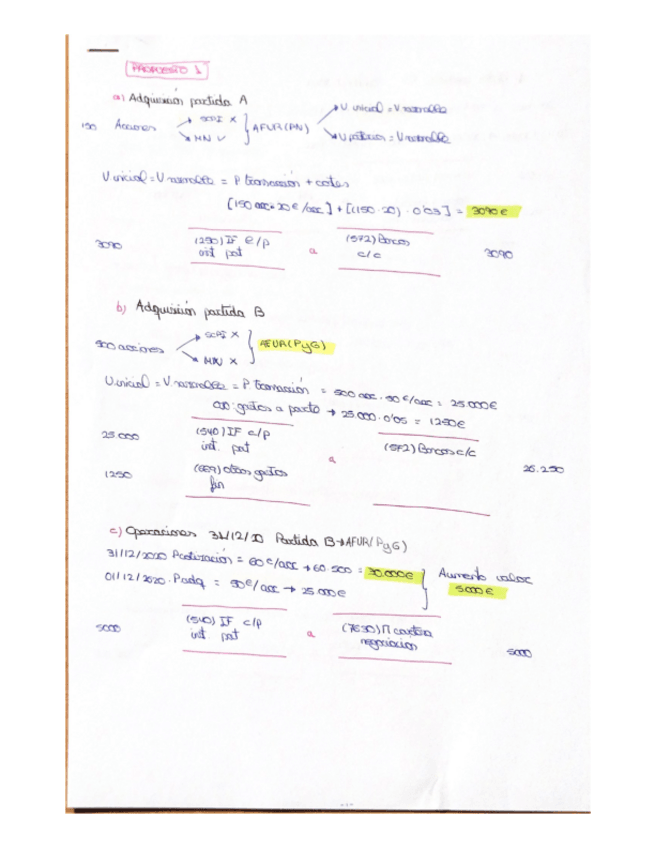 PROPUESTO 1
a) Adquisición partida A
150 Acciones
SCPI X
MN ✓
AFVR(PN)
V inicial = V razonable
V posterior = V razonable
V inicial = V razonable = P transacción + costes
[150 acc · 20 €/acc] + [(150 · 20) · 0'03] = 3090 €
3090 (250) IF l/p a (572) Bancos 3090
int pat c/c
b) Adquisición partida B
500 acciones
SCPI X
MN X
AFVR(PyG)
V inicial = V razonable = P transacción = 500 acc · 50 €/acc = 25000€
gastos a parte → 25.000 · 0'05 = 1250€
25.000 (540) IF c/p
int. pat a (572) Bancos c/c
1250 (669) Otros gastos 26.250
fin
c) Operaciones 31/12/20 Partida B → AFVR(PyG)
31/12/2020 P cotización = 60 €/acc → 60 · 500 = 30.000€
01/12/2020 · P adq = 50€/acc → 25.000€
Aumento valor
5000 €
5000 (540) IF c/p a (7630) Π cartera
int. pat negociación 5000